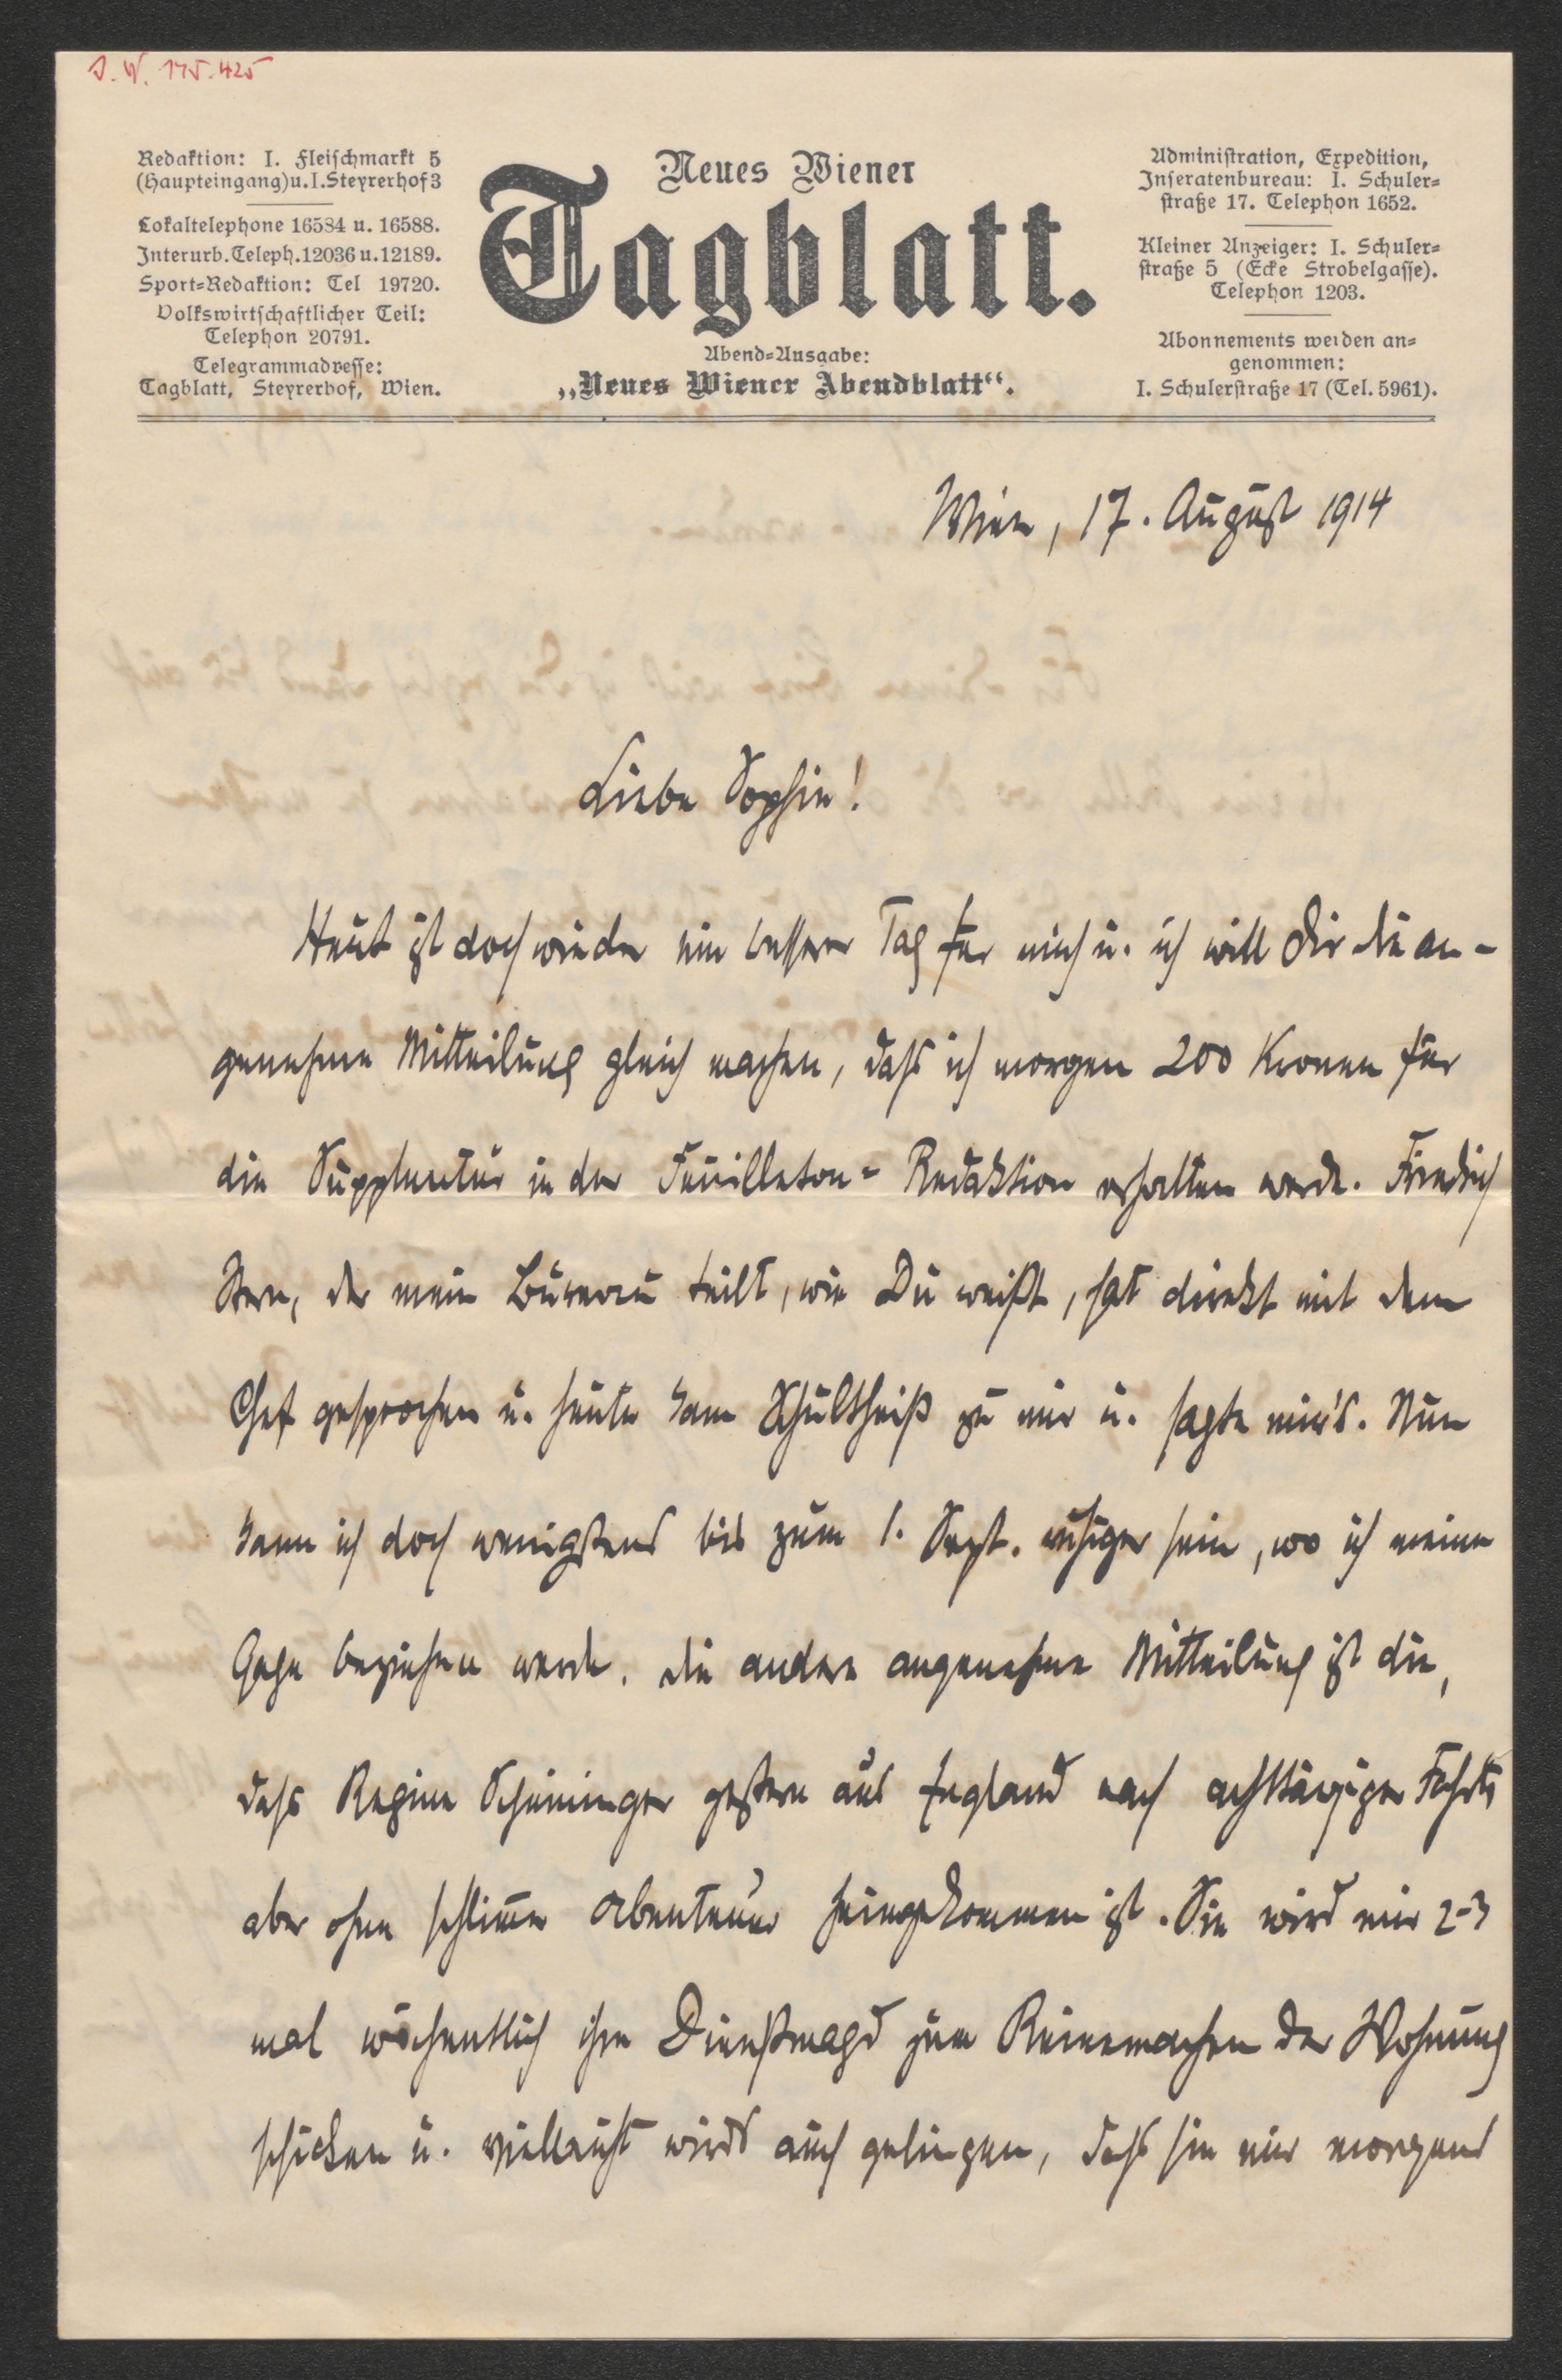 J. N. 175.425
Redaktion: I. Fleischmarkt 5
(Haupteingang) u. I. Steyrerhof 3
Lokaltelephone 16584 u. 16588.
Interurb. Teleph. 12036 u. 12189.
Sport=Redaktion: Tel 19720.
Volkswirtschaftlicher Teil:
Telephon 20791.
Telegrammadresse:
Tagblatt, Steyrerhof, Wien.
Neues Wiener
Tagblatt.
Abend=Ausgabe:
„Neues Wiener Abendblatt“.
Administration, Expedition,
Inseratenbureau: I. Schuler=
straße 17. Telephon 1652.
Kleiner Anzeiger: I. Schuler=
straße 5 (Ecke Strobelgasse).
Telephon 1203.
Abonnements werden an=
genommen:
I. Schulerstraße 17 (Tel. 5961).
Wien, 17. August 1914
Liebe Sophie!
Heut ist doch wieder ein besserer Tag für mich u. ich will Dir die an-
genehme Mitteilung gleich machen, dass ich morgen 200 Kronen für
die Supplentur in der Feuilleton=Redaktion erhalten werde. Friedrich
Stern, der mein Bureau teilt, wie Du weißt, hat direkt mit dem
Chef gesprochen u. heute kam Schultheiß zu mir u. sagte mir's. Nun
kann ich doch wenigstens bis zum 1. Sept. ruhiger sein, wo ich meine
Gage beziehen werde. Die andere angenehme Mitteilung ist die,
dass Regine Scheininger gestern aus England nach achttägiger Fahrt,
aber ohne schlimme Abenteuer heimgekommen ist. Sie wird mir 2-3
mal wöchentlich ihre Dienstmagd zum Reinemachen der Wohnung
schicken u. vielleicht wird's auch gelingen, dass sie mir morgens